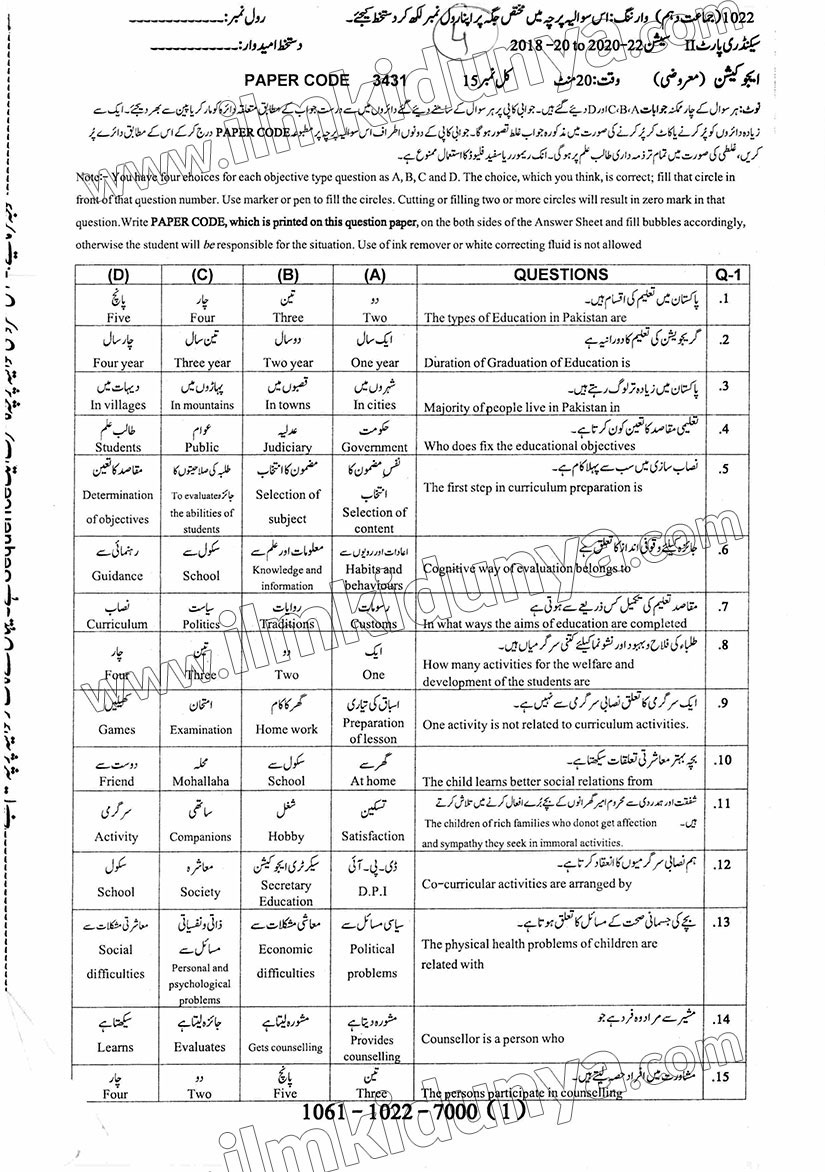 1022 (جماعت دہم) وارننگ: اس سوالیہ پرچہ میں مختص جگہ پر اپنا رول نمبر لکھ کر دستخط کیجئے۔ رول نمبر:
سیکنڈری پارٹ II سیشن 2018-20 to 2020-22 دستخط امیدوار:
4
ایجوکیشن (معروضی) وقت: 20 منٹ کل نمبر 15 PAPER CODE 3431
نوٹ: ہر سوال کے چار ممکنہ جوابات A، B، C اور D دیئے گئے ہیں۔ جوابی کاپی پر ہر سوال کے سامنے دیئے گئے دائروں میں سے درست جواب کے مطابق متعلقہ دائرہ کو مارکر یا پین سے بھر دیجئے۔ ایک سے
زیادہ دائروں کو پُر کرنے یا کاٹ کر پُر کرنے کی صورت میں مذکورہ جواب غلط تصور ہوگا۔ جوابی کاپی کے دونوں اطراف اس سوالیہ پرچہ پر مطبوعہ PAPER CODE درج کر کے اس کے مطابق دائرے پُر
کریں، غلطی کی صورت میں تمام تر ذمہ داری طالب علم پر ہوگی۔ انک ریموور یا سفید فلیوڈ کا استعمال ممنوع ہے۔
Note:- You have four choices for each objective type question as A, B, C and D. The choice, which you think, is correct; fill that circle in
front of that question number. Use marker or pen to fill the circles. Cutting or filling two or more circles will result in zero mark in that
question.Write PAPER CODE, which is printed on this question paper, on the both sides of the Answer Sheet and fill bubbles accordingly,
otherwise the student will be responsible for the situation. Use of ink remover or white correcting fluid is not allowed
(D) (C) (B) (A) QUESTIONS Q-1
پاکستان میں تعلیم کی اقسام ہیں۔ .1
دو تین چار پانچ
Five Four Three Two The types of Education in Pakistan are
گریجویشن کی تعلیم کا دورانیہ ہے .2
ایک سال دو سال تین سال چار سال
Four year Three year Two year One year Duration of Graduation of Education is
پاکستان میں زیادہ تر لوگ رہتے ہیں۔ .3
شہروں میں قصبوں میں پہاڑوں میں دیہات میں
In villages In mountains In towns In cities Majority of people live in Pakistan in
تعلیمی مقاصد کا تعین کون کرتا ہے۔ .4
حکومت عدلیہ عوام طالب علم
Students Public Judiciary Government Who does fix the educational objectives
نصاب سازی میں سب سے پہلا کام ہے۔ .5
نفس مضمون کا انتخاب مضمون کا انتخاب طلبہ کی صلاحیتوں کا جائزہ مقاصد کا تعین
The first step in curriculum preparation is
Determination of objectives To evaluate the abilities of students Selection of subject Selection of content
جائزہ کیلئے وقوفی انداز کا تعلق ہے .6
عادات اور رویوں سے معلومات اور علم سے سکول سے رہنمائی سے
Guidance School Knowledge and information Habits and behaviours Cognitive way of evaluation belongs to
مقاصد تعلیم کی تکمیل کس ذریعے سے ہوتی ہے .7
رسومات روایات سیاست نصاب
Curriculum Politics Traditions Customs In what ways the aims of education are completed
طلباء کی فلاح و بہبود اور نشوونما کیلئے کتنی سرگرمیاں ہیں۔ .8
ایک دو تین چار
Four Three Two One How many activities for the welfare and
development of the students are
ایک سرگرمی کا تعلق نصابی سرگرمی سے نہیں ہے۔ .9
اسباق کی تیاری گھر کا کام امتحان کھیلیں
Games Examination Home work Preparation of lesson One activity is not related to curriculum activities.
بچہ بہتر معاشرتی تعلقات سیکھتا ہے۔ .10
گھر سے سکول سے محلہ دوست سے
Friend Mohallaha School At home The child learns better social relations from
شفقت اور ہمدردی سے محروم امیر گھرانوں کے بچے بُرے افعال کرنے میں تلاش کرتے ہیں۔ .11
تسکین شغل ساتھی سرگرمی
The children of rich families who donot get affection
Activity Companions Hobby Satisfaction and sympathy they seek in immoral activities.
ہم نصابی سرگرمیوں کا انعقاد کرتا ہے۔ .12
ڈی۔پی۔آئی سیکرٹری ایجوکیشن معاشرہ سکول
School Society Secretary Education D.P.I Co-curricular activities are arranged by
بچے کی جسمانی صحت کے مسائل کا تعلق ہوتا ہے۔ .13
سیاسی مسائل سے معاشی مشکلات سے ذاتی و نفسیاتی مسائل سے معاشرتی مشکلات سے
The physical health problems of children are
related with
Social difficulties Personal and psychological problems Economic difficulties Political problems
مشیر سے مراد وہ فرد ہے جو .14
مشورہ دیتا ہے مشورہ لیتا ہے جائزہ لیتا ہے سیکھتا ہے
Learns Evaluates Gets counselling Provides counselling Counsellor is a person who
مشاورت میں افراد حصہ لیتے ہیں۔ .15
تین پانچ دو چار
Four Two Five Three The persons participate in counselling
1061-1022-7000 (1)
www.ilmkidunya.com
www.ilmkidunya.com
www.ilmkidunya.com
ilmkidunya.com